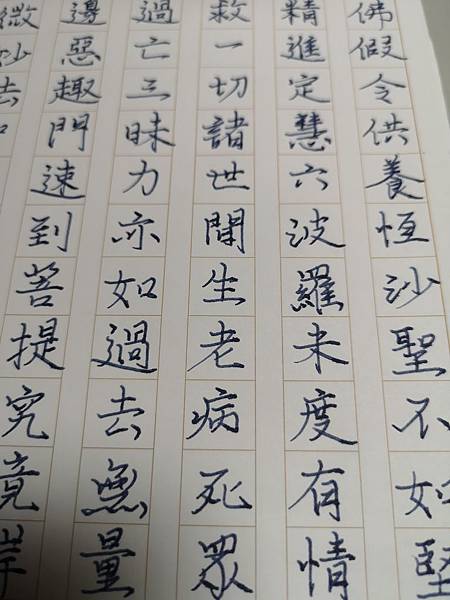 佛假令供養恒沙聖不如堅
精進定慧六波羅未度有情
救一切諸世間生老病死眾
過亡三昧力亦如過去無量
邊惡趣門速到菩提究竟岸
微妙